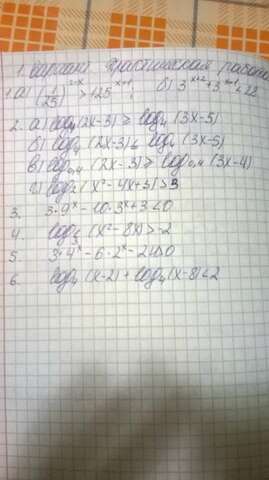 1. вариант практическая работа
1. а) (1/25)^(2-x) > 125^(x+1); б) 3^(x+2) + 3^(x-1) < 28
2. а) log₄(2x-3) ≥ log₄(3x-5)
(2x-3) ≤ (3x-5)
в) log₀,₄(2x-3) ≥ log₀,₄(3x-4)
(x²-4x+3) > 3
3. 3·9^x - 10·3^x + 3 < 0
4. (x²-8x) > -2
5. 3·4^x - 6·2^x
6. log₄(x-2) + log₄(x-8) < 2